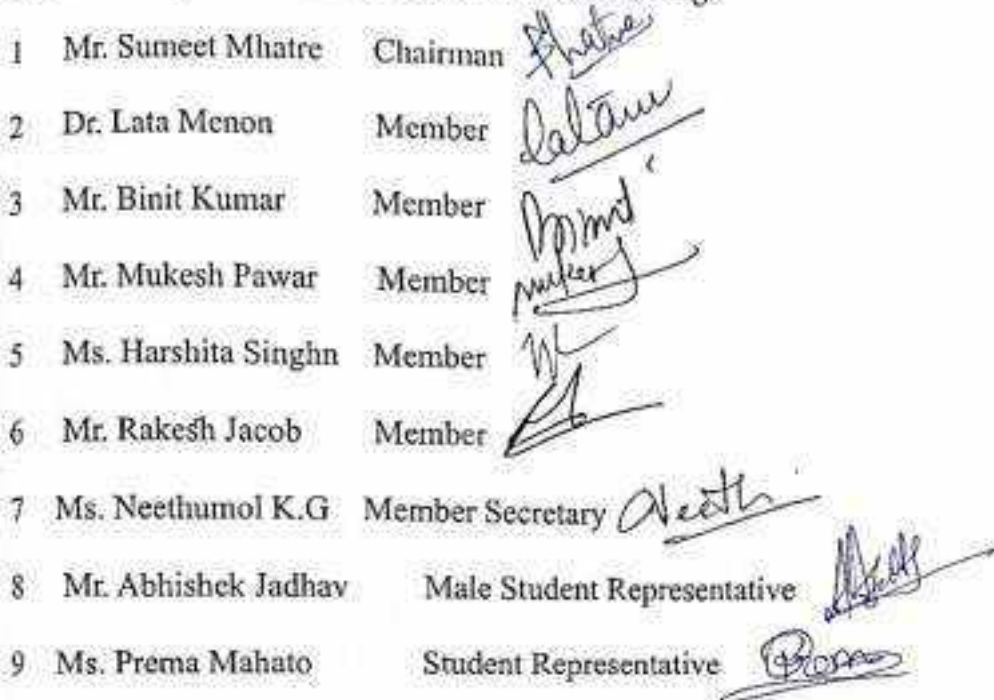 1 Mr. Sumeet Mhatre Chairman Mhatre
2 Dr. Lata Menon Member
3 Mr. Binit Kumar Member Binit
4 Mr. Mukesh Pawar Member
5 Ms. Harshita Singhn Member
6 Mr. Rakesh Jacob Member
7 Ms. Neethumol K.G Member Secretary Neeth
8 Mr. Abhishek Jadhav Male Student Representative
9 Ms. Prema Mahato Student Representative